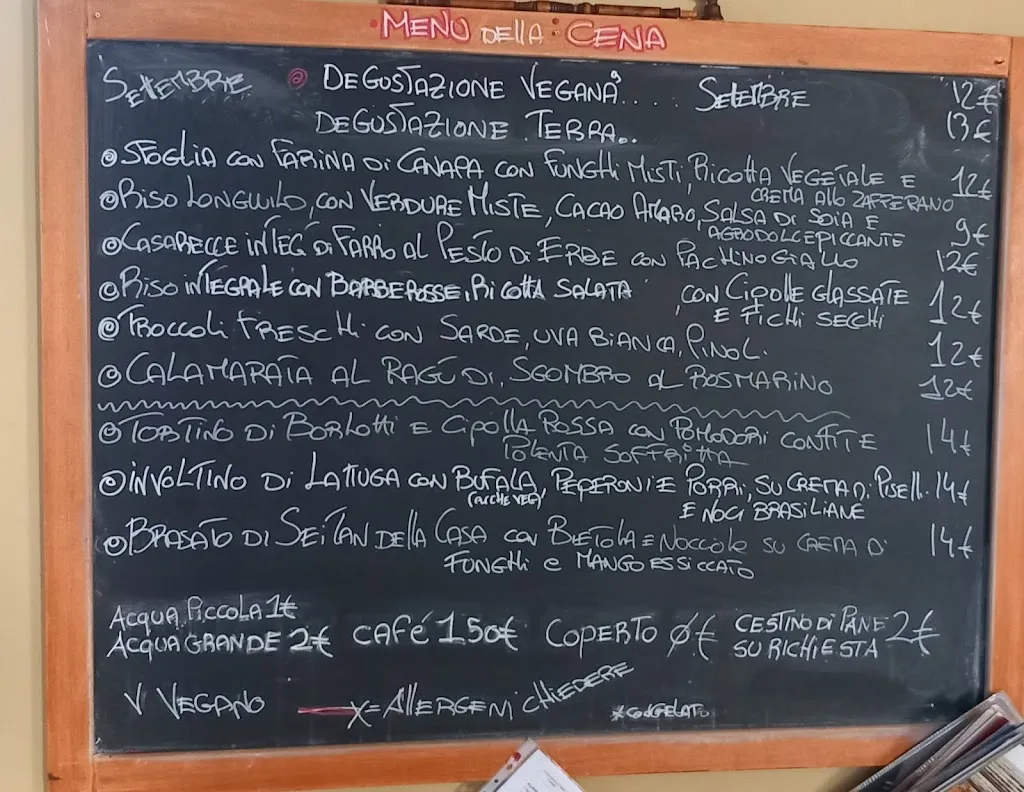 MENU DELLA CENA
SETTEMBRE DEGUSTAZIONE VEGANA .... SETTEMBRE 12€
DEGUSTAZIONE TERRA.. 13€
SFOGLIA CON FARINA DI CANAPA CON FUNGHI MISTI, RICOTTA VEGETALE E 12€
CREMA ALLO ZAFFERANO
RISO LONGWILD, CON VERDURE MISTE, CACAO AMARO, SALSA DI SOIA E 9€
AGRODOLCE PICCANTE
CASARECCE INTEG DI FARRO AL PESTO DI ERBE CON PACHINO GIALLO 12€
RISO INTEGRALE CON BARBE ROSSE, RICOTTA SALATA, CON CIPOLLE GLASSATE 12€
E FICHI SECCHI
TROCCOLI FRESCHI CON SARDE, UVA BIANCA, PINOLI 12€
CALAMARATA AL RAGÙ DI SGOMBRO AL ROSMARINO 12€
TORTINO DI BORLOTTI E CIPOLLA ROSSA CON POMODORI CONFITE 14€
POLENTA SOFFRITTA
INVOLTINO DI LATTUGA CON BUFALA, PEPERONI E PORRI, SU CREMA DI PISELLI 14€
(ANCHE VEG) E NOCI BRASILIANE
BRASATO DI SEITAN DELLA CASA CON BIETOLA E NOCCIOLE SU CREMA DI 14€
FUNGHI E MANGO ESSICCATO
ACQUA PICCOLA 1€
ACQUA GRANDE 2€ CAFÉ 1.50€ COPERTO 0€ CESTINO DI PANE 2€
SU RICHIESTA
V VEGANO X= ALLERGENI CHIEDERE *CONGELATO